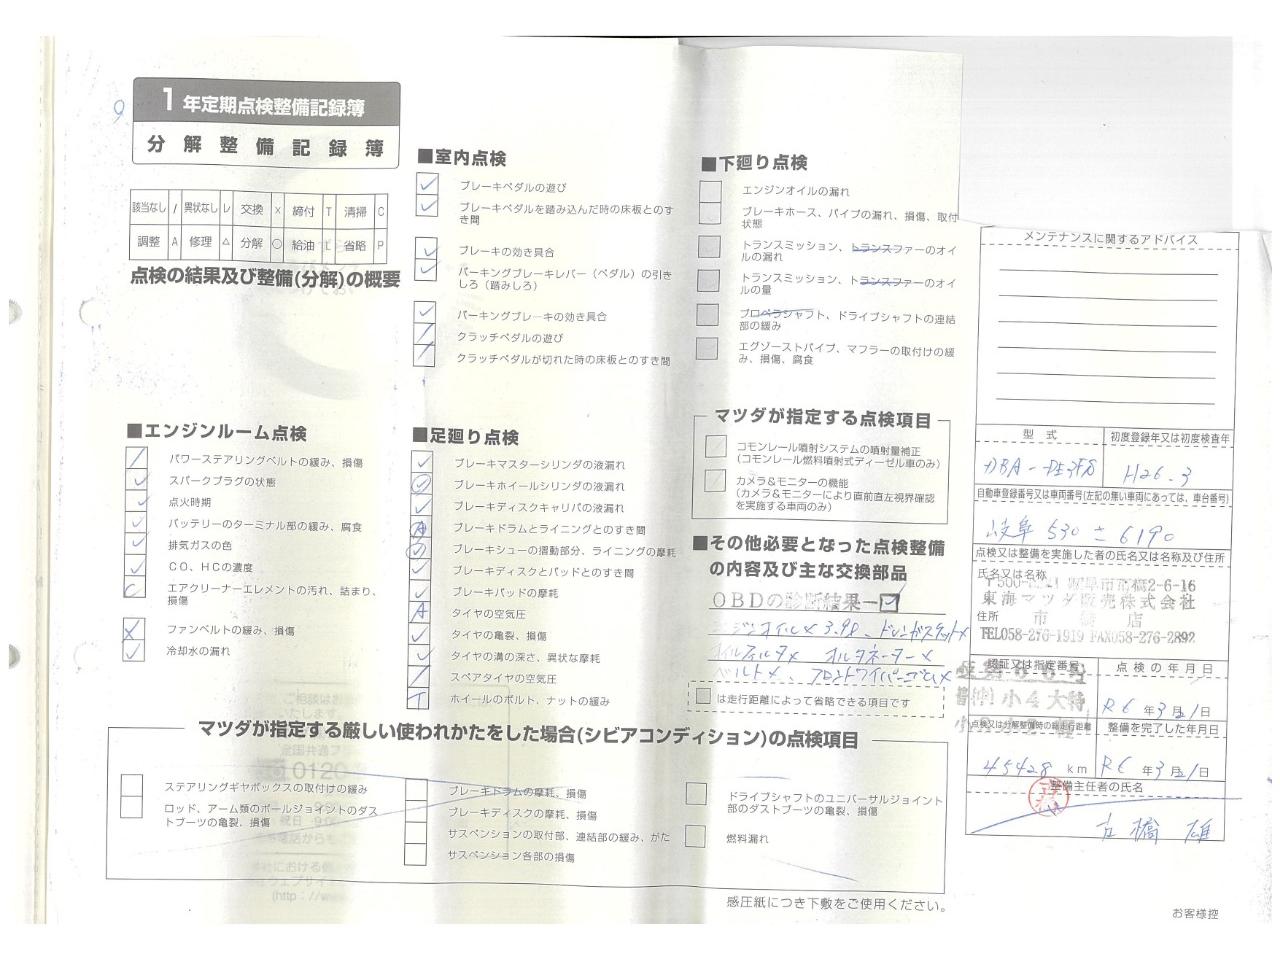 1年定期点検整備記録簿
分解整備記録簿
該当なし / 異状なし レ 交換 × 締付 T 清掃 C
調整 A 修理 △ 分解 ○ 給油 L 省略 P
点検の結果及び整備(分解)の概要
■エンジンルーム点検
パワーステアリングベルトの緩み、損傷
スパークプラグの状態
点火時期
バッテリーのターミナル部の緩み、腐食
排気ガスの色
CO、HCの濃度
エアクリーナーエレメントの汚れ、詰まり、
損傷
ファンベルトの緩み、損傷
冷却水の漏れ
■室内点検
ブレーキペダルの遊び
ブレーキペダルを踏み込んだ時の床板とのす
き間
ブレーキの効き具合
パーキングブレーキレバー(ペダル)の引き
しろ(踏みしろ)
パーキングブレーキの効き具合
クラッチペダルの遊び
クラッチペダルが切れた時の床板とのすき間
■足廻り点検
ブレーキマスターシリンダの液漏れ
ブレーキホイールシリンダの液漏れ
ブレーキディスクキャリパの液漏れ
ブレーキドラムとライニングとのすき間
ブレーキシューの摺動部分、ライニングの摩耗
ブレーキディスクとパッドとのすき間
ブレーキパッドの摩耗
タイヤの空気圧
タイヤの亀裂、損傷
タイヤの溝の深さ、異状な摩耗
スペアタイヤの空気圧
ホイールのボルト、ナットの緩み
■下廻り点検
エンジンオイルの漏れ
ブレーキホース、パイプの漏れ、損傷、取付
状態
トランスミッション、トランスファーのオイ
ルの漏れ
トランスミッション、トランスファーのオイ
ルの量
プロペラシャフト、ドライブシャフトの連結
部の緩み
エグゾーストパイプ、マフラーの取付けの緩
み、損傷、腐食
マツダが指定する点検項目
コモンレール噴射システムの噴射量補正
(コモンレール燃料噴射式ディーゼル車のみ)
カメラ&モニターの機能
(カメラ&モニターにより直前直左視界確認
を実施する車両のみ)
■その他必要となった点検整備
の内容及び主な交換部品
OBDの診断結果ー
ンジンオイル× 3.9L、ドレンガスケット×
オイルフィルタ× オルタネーター×
ベルト×、フロントワイパーゴム×
は走行距離によって省略できる項目です
マツダが指定する厳しい使われかたをした場合(シビアコンディション)の点検項目
ステアリングギヤボックスの取付けの緩み
ロッド、アーム類のボールジョイントのダス
トブーツの亀裂、損傷
ブレーキドラムの摩耗、損傷
ブレーキディスクの摩耗、損傷
サスペンションの取付部、連結部の緩み、がた
サスペンション各部の損傷
ドライブシャフトのユニバーサルジョイント
部のダストブーツの亀裂、損傷
燃料漏れ
感圧紙につき下敷をご使用ください。
メンテナンスに関するアドバイス
型式 初度登録年又は初度検査年
DBA-DE3FS H26.3
自動車登録番号又は車両番号(左記の無い車両にあっては、車台番号)
岐阜 530 さ 6190
点検又は整備を実施した者の氏名又は名称及び住所
氏名又は名称
2-6-16
東海マツダ販売株式会社
住所 市橋店
TEL058-276-1919 FAX058-276-2892
認証又は指定番号 点検の年月日
小4大特
R6年3月21日
点検又は分解整備時の総走行距離 整備を完了した年月日
45428 km R6年3月21日
整備主任者の氏名
古橋 雄
お客様控